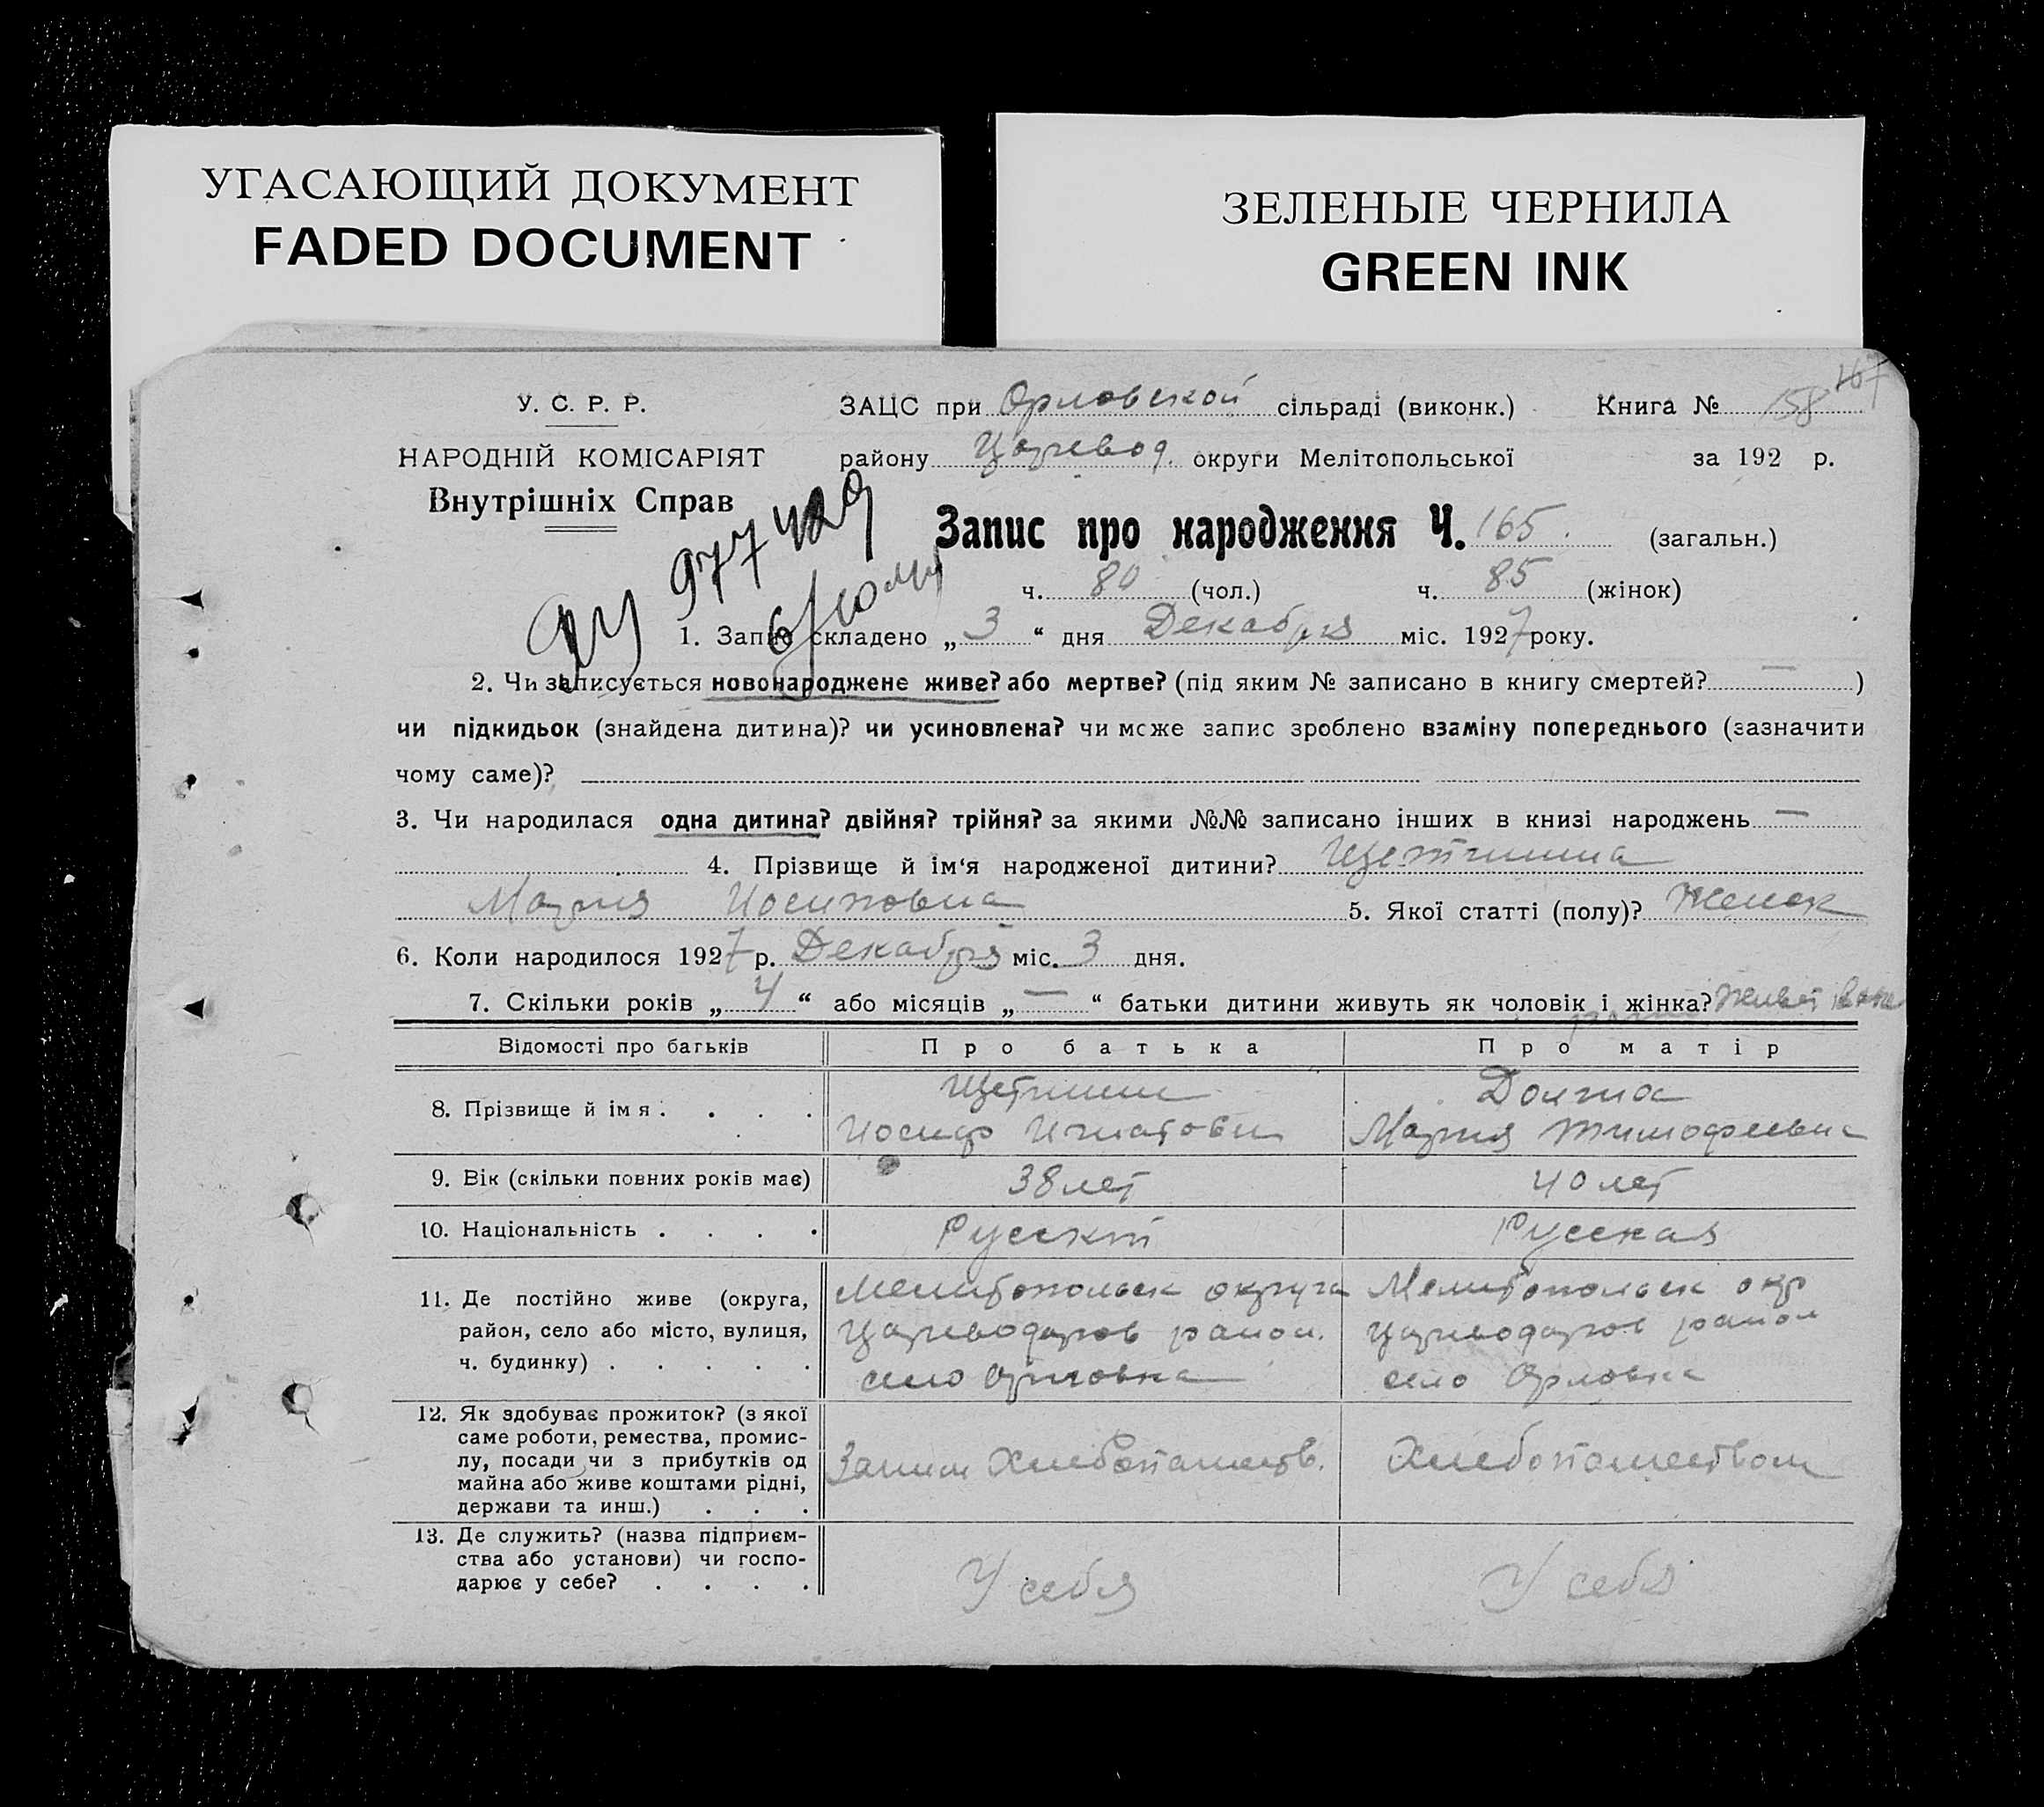 УГАСАЮЩИЙ ДОКУМЕНТ
FADED DOCUMENT
ЗЕЛЕНЫЕ ЧЕРНИЛА
GREEN INK
167
У. С. Р. Р.
НАРОДНІЙ КОМІСАРІЯТ
Внутрішніх Справ
ЗАЦС при Орловской сільраді (виконк.) Книга № 158
району Царевод. округи Мелітопольської за 192 р.
Запис про народження Ч. 165 (загальн.)
ч. 80 (чол.) ч. 85 (жінок)
1. Запис складено „3“ дня Декабря міс. 1927 року.
2. Чи записується новонароджене живе? або мертве? (під яким № записано в книгу смертей? — )
чи підкидьок (знайдена дитина)? чи усиновлена? чи може запис зроблено взаміну попереднього (зазначити
чому саме)?
3. Чи народилася одна дитина? двійня? трійня? за якими №№ записано інших в книзі народжень —
4. Прізвище й ім‘я народженої дитини? Щетинина
Мария Иосиповна 5. Якої статті (полу)? Женск
6. Коли народилося 1927 р. Декабря міс. 3 дня.
7. Скільки років „4“ або місяців „—“ батьки дитини живуть як чоловік і жінка?
Відомості про батьків Про батька Про матір
8. Прізвище й імя . . . . Щетинин Долгиа
Иосиф Игнатович Мария Тимофеевна
9. Вік (скільки повних років має) 38 лет 40 лет
10. Національність . . . . Русский Русская
11. Де постійно живе (округа, район, село або місто, вулиця, ч. будинку) . . . . . Мелитопольск округа Мелитопольск окр
Цареводаров район. Цареводаров район
село Орловка село Орловка
12. Як здобуває прожиток? (з якої саме роботи, ремества, промислу, посади чи з прибутків од майна або живе коштами рідні, держави та инш.) . . . Заним Хлебопашеств. Хлебопашеством
13. Де служить? (назва підприємства або установи) чи господарює у себе? . . . . У себя У себя